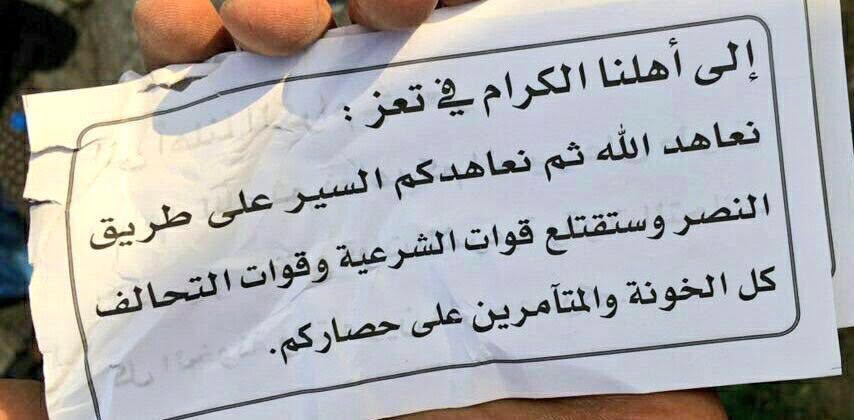 إلى أهلنا الكرام في تعز :
نعاهد الله ثم نعاهدكم السير على طريق
النصر وستقتلع قوات الشرعية وقوات التحالف
كل الخونة والمتآمرين على حصاركم.